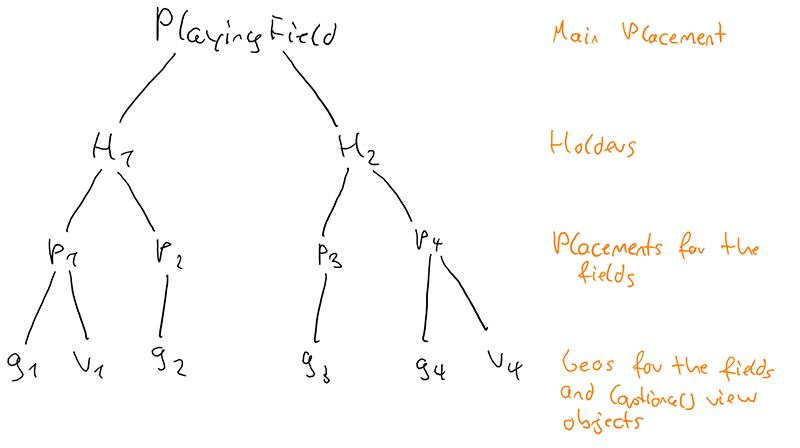 PlayingField Main Placement
H1 H2 Holders
P1 P2 P3 P4 Placements for the
fields
g1 v1 g2 g3 g4 v4 Geos for the fields
and (optional) view
objects